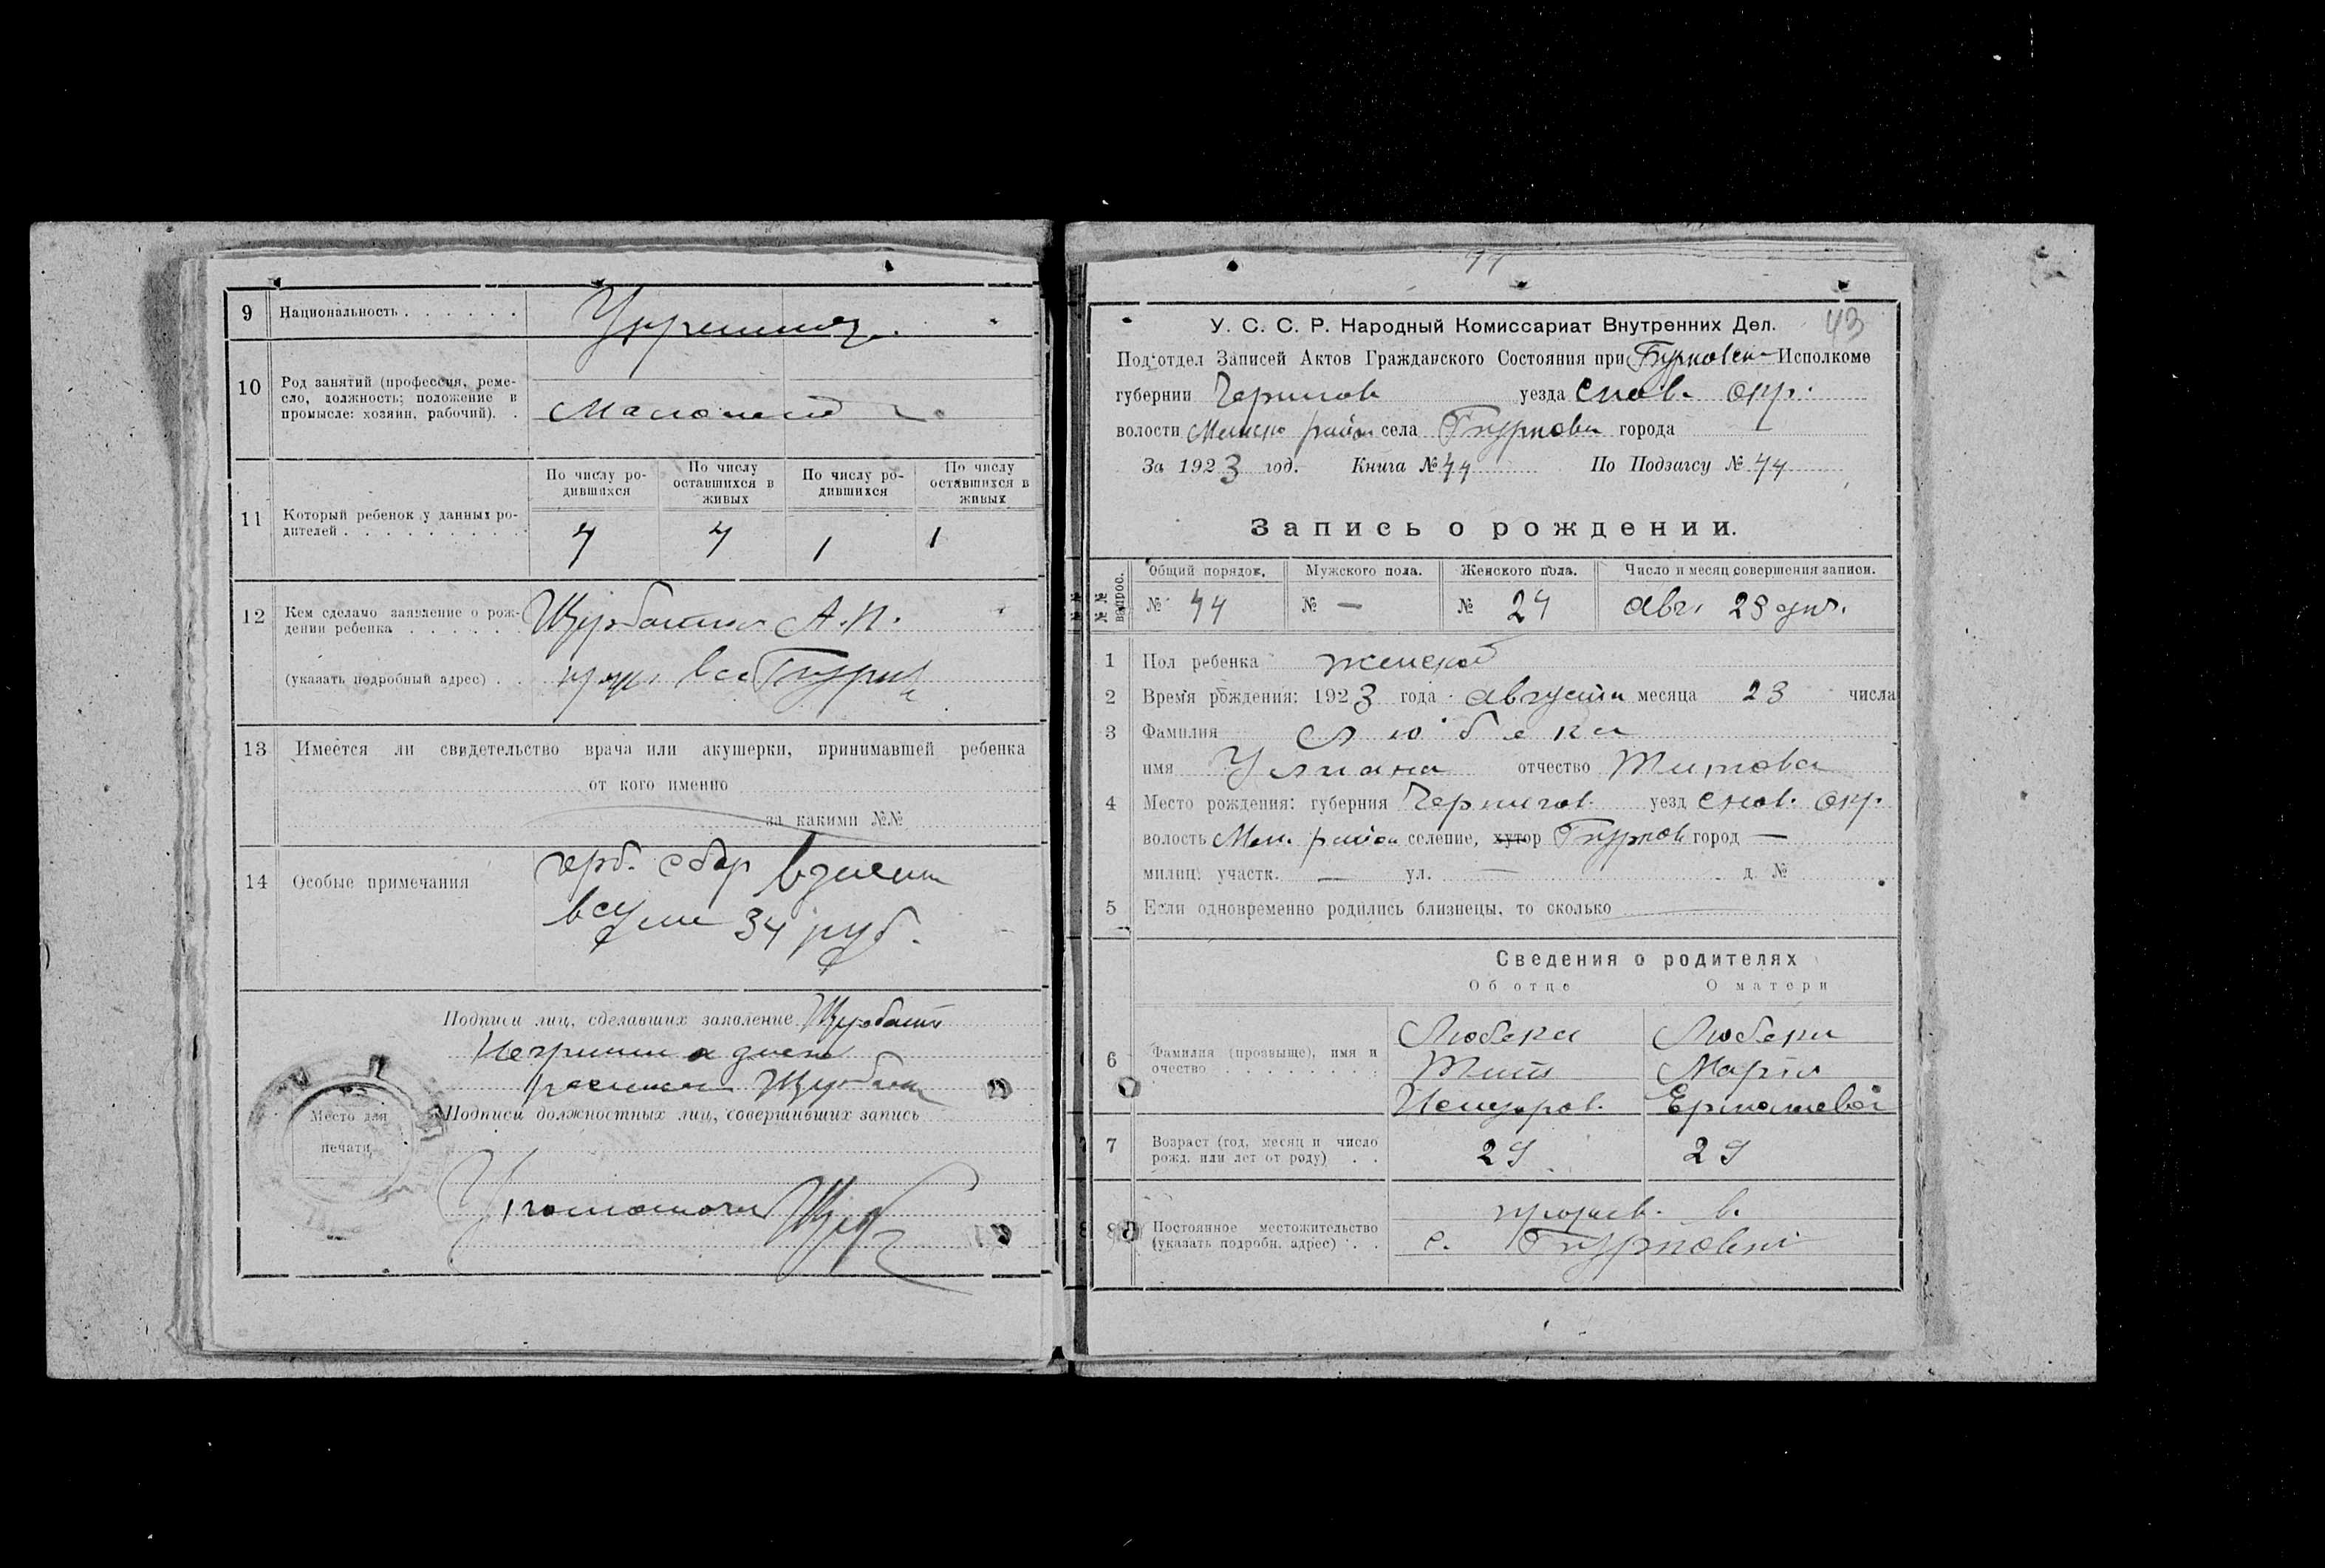 9 Национальность . . . . . .
10 Род занятий (профессия, реме-
сло, должность; положение в
промысле: хозяин, рабочий). .
По числу ро-
дившихся
По числу
оставшихся в
живых
По числу ро-
дившихся
По числу
оставшихся в
живых
11 Который ребенок у данных ро-
дителей . . . . . . . . .
1 1
12 Кем сделано заявление о рож-
дении ребенка . . . . . А. П.
(указать подробный адрес) . .
13 Имеется ли свидетельство врача или акушерки, принимавшей ребенка
от кого именно
за какими №№
14 Особые примечания
герб. сбор
в сумме 34 руб.
Подписи лиц, сделавших заявление
Подписи должностных лиц, совершивших запись
Место для
печати
Уполномочен
43
У. С. С. Р. Народный Комиссариат Внутренних Дел.
Подотдел Записей Актов Гражданского Состояния при Бурковск Исполкоме
губернии Чернигов уезда Снов. окр.
волости Менско район села Бурковка города
За 1923 год. Книга № 44 По Подзагсу № 44
Запись о рождении.
№№ вопрос.
Общий порядок. Мужского пола. Женского пола. Число и месяц совершения записи.
№ 44 № — № 24 авг. 28 дня.
1 Пол ребенка женской
2 Время рождения: 1923 года августа месяца 23 числа
3 Фамилия Любека
имя Улиана отчество Титова
4 Место рождения: губерния Чернигов. уезд Снов. окр.
волость Мен. район селение, хутор Бурков город —
милиц. участк. — ул. — д. №
5 Если одновременно родились близнецы, то сколько
Сведения о родителях
Об отце О матери
6 Фамилия (прозвыще), имя и
очество . . . . . . . .
Любека Любеки
Тит Мария
Ермолаевой
7 Возраст (год, месяц и число
рожд. или лет от роду) . .
29 29
8 Постоянное местожительство
(указать подробн. адрес) . .
прожив. в.
с. Бурковки